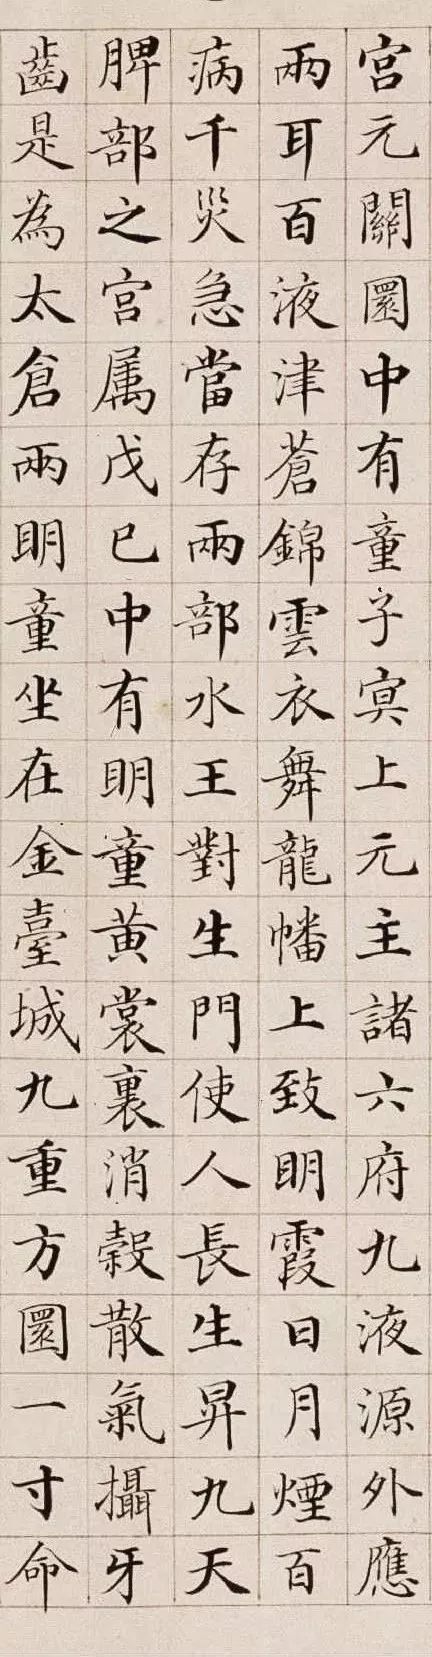 宮元關圜中有童子寞上元主諸六府九液源外應
兩耳百液津蒼錦雲衣舞龍幡上致明霞日月煙百
病千災急當存兩部水王對生門使人長生昇九天
脾部之宮属戊巳中有明童黃裳裏消糓散氣攝牙
齒是為太倉兩明童坐在金臺城九重方圜一寸命